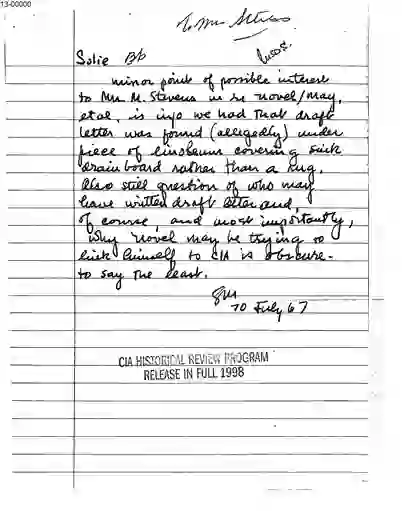 13-00000
To Mr Stevens
Solie Bp
minor point of possible interest
to Mr. M. Stevens in re novel/may,
et al, is info we had that draft
letter was found (allegedly) under
piece of linoleum covering sink
drainboard rather than a rug.
Also still question of who may
have written draft letter and,
of course, and most importantly,
why novel may be trying to
link himself to CIA is obscure -
to say the least.
SM
10 July 67
CIA HISTORICAL REVIEW PROGRAM
RELEASE IN FULL 1998